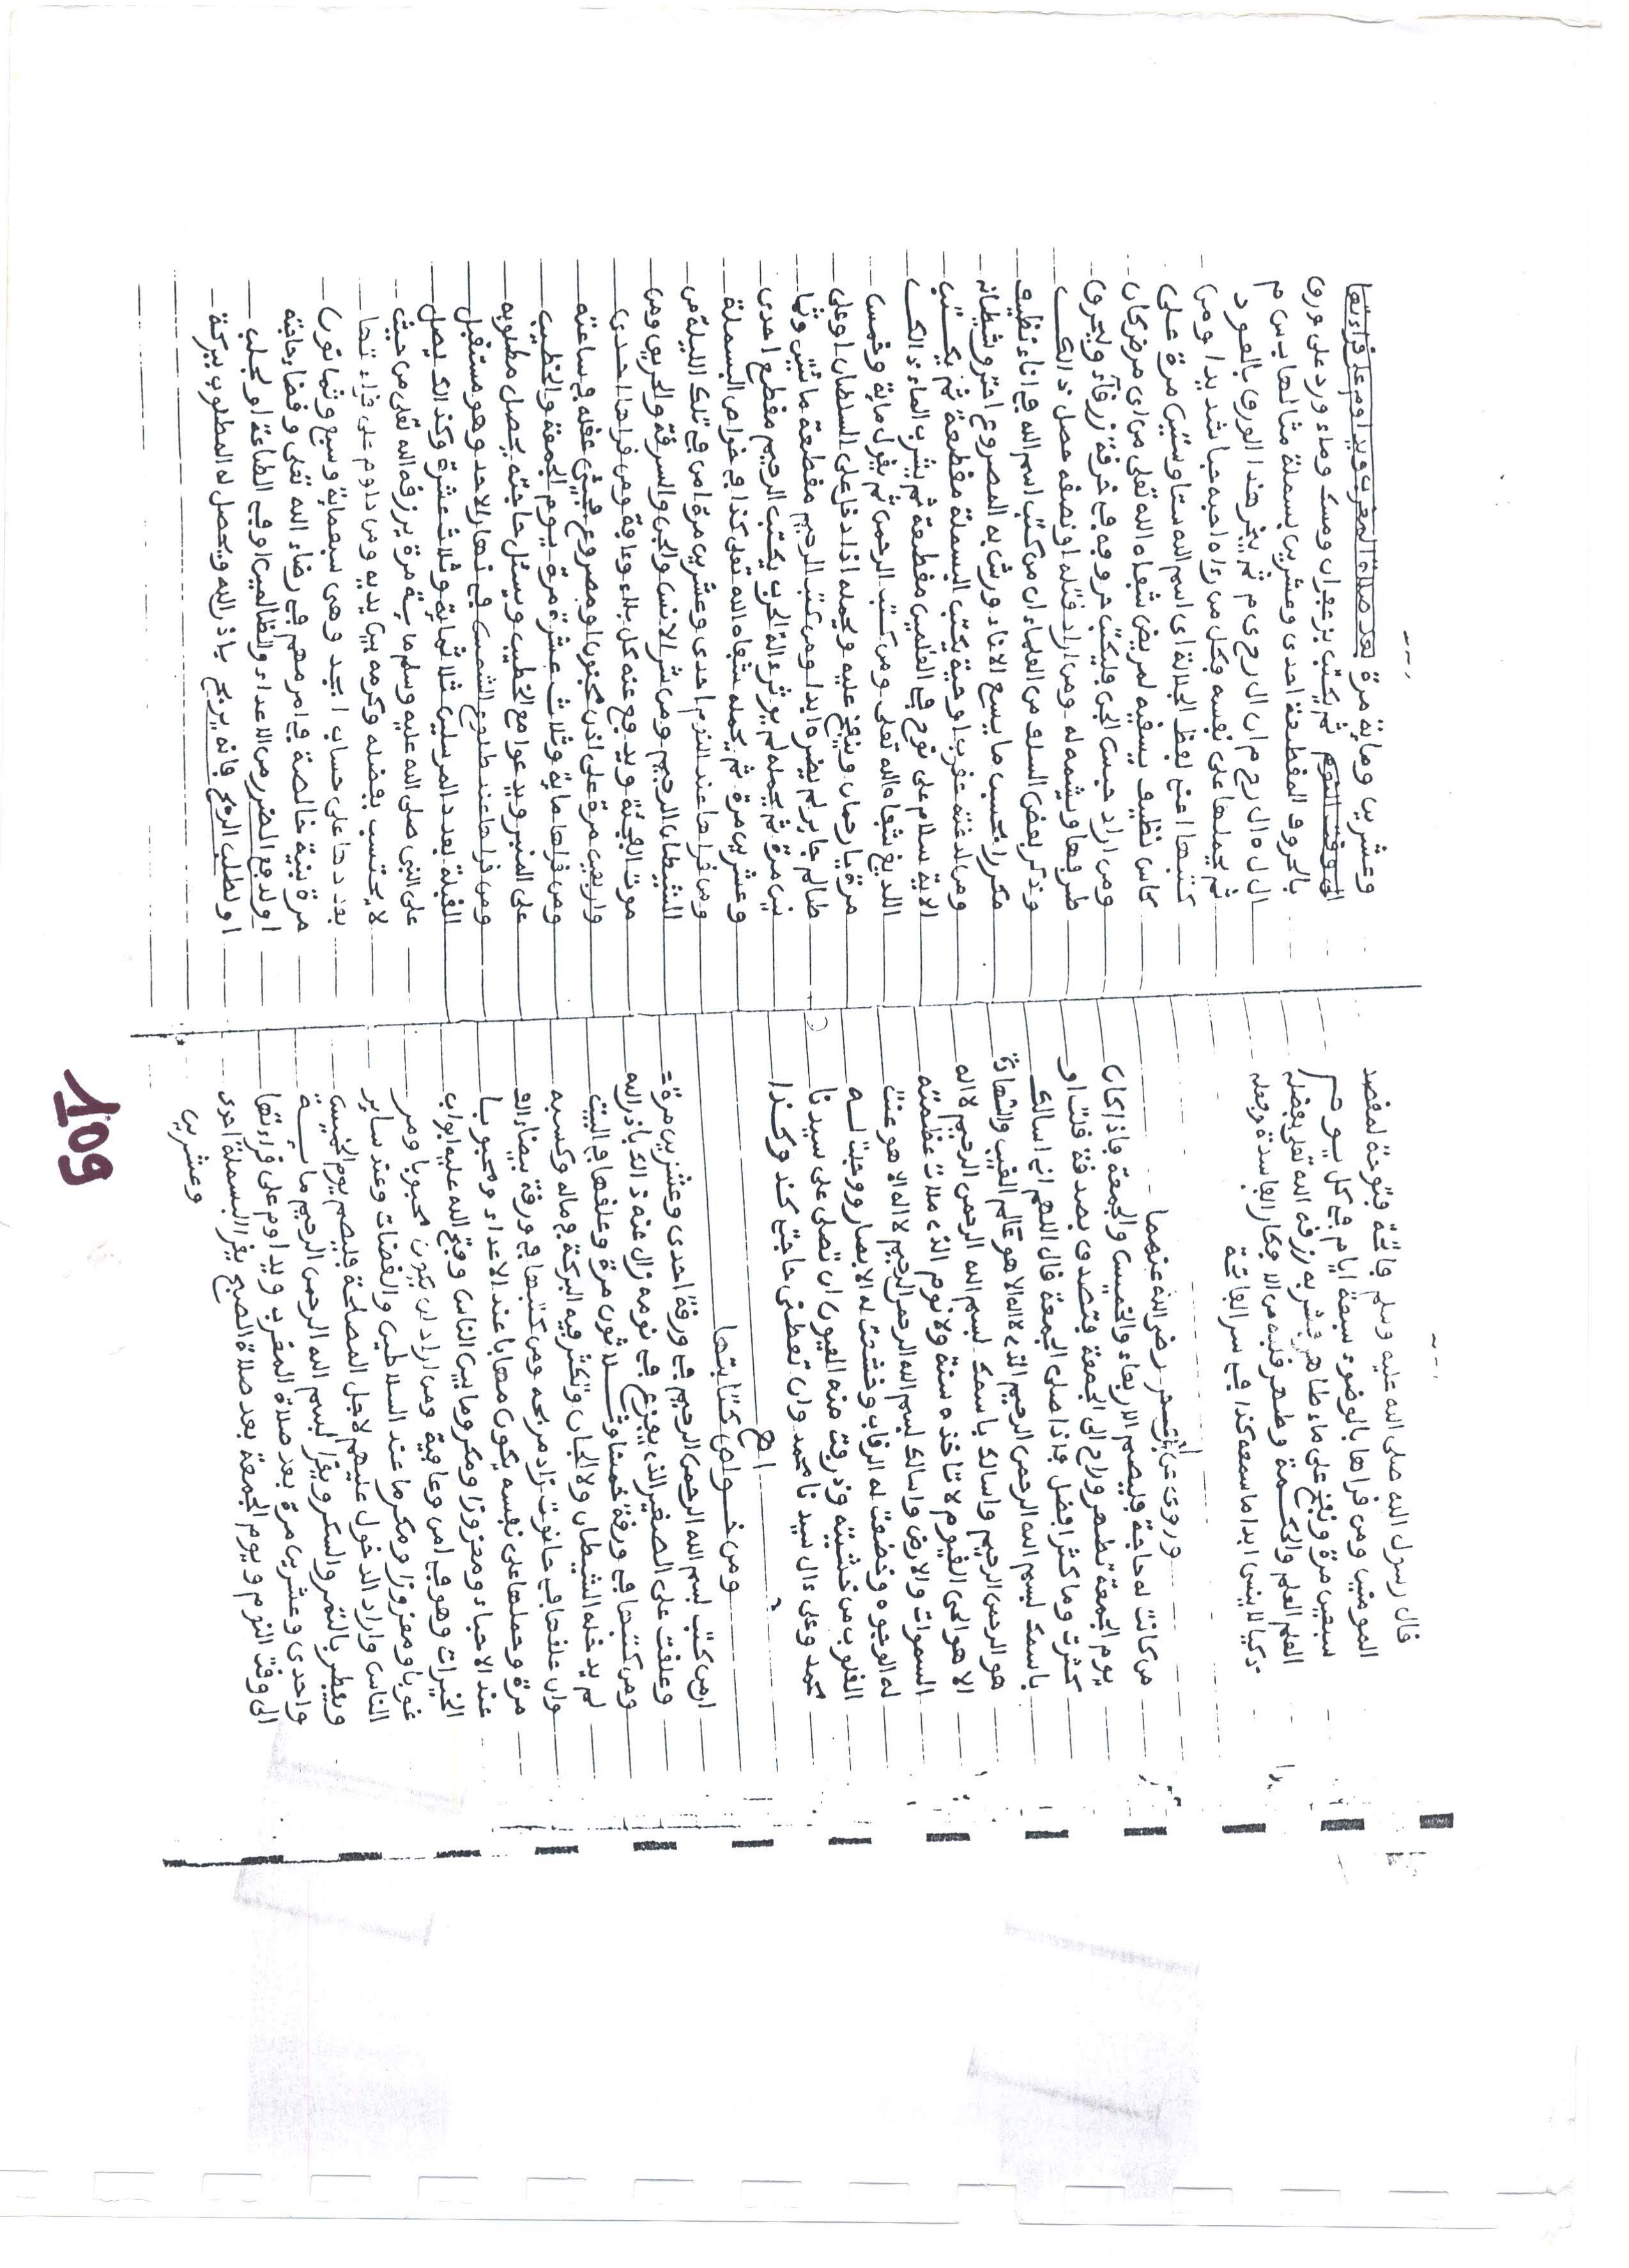 قال رسول الله صلى الله عليه وسلم فاتحة فتوحة لمقصد
المومنين ومن قراها بالوضوء سبعة ايام في كل يوم
سبعين مرة ونفخ على ماء طاهر فشربه رزقه الله تعلى بفضله
العلم والحكمة وطهر قلبه من الافكار الفاسدة وجعله
ذكيا لا ينسى ابدا ما سمعه كذا في سر الفاتحة
وروى عن رضي الله عنهما
من كانت له حاجة فليصم الاربعاء والخميس والجمعة فاذا كان
يوم الجمعة تطهر وراح الى الجمعة فتصدق بصدقة قلت او
كثرت وما كثر افضل فاذا صلى الجمعة قال اللهم اني اسالك
باسمك بسم الله الرحمن الرحيم الذي لا اله الا هو عالم الغيب والشهادة
هو الرحمن الرحيم واسالك باسمك بسم الله الرحمن الرحيم لا اله
الا هو الحي القيوم لا تاخذه سنة ولا نوم الذي ملات عظمته
السموات والارض واسالك بسم الله الرحمن الرحيم لا اله الا هو عنت
له الوجوه وخضعت له الرقاب وخشعت له الابصار ووجلت له
القلوب من خشيته وذرفت منه العيون ان تصلي على سيدنا
محمد وعلى ءال سيدنا محمد وان تعطني حاجتي كذا وكذا
اهـ
ومن خواص كتابتها
ان من كتب بسم الله الرحمن الرحيم في ورقة احدى وعشرين مرة
وعلقت على الصغير الذي يفزع في نومه زال عنه ذالك باذن الله
ومن كتبها في ورقة خمسا وثلاثون مرة وعلقها في البيت
لم يدخله الشيطان ولا الجان وتكثر فيه البركة في ماله وكسبه
وان علقها في حانوت زاد مربحه ومن كتبها في ورقة بيضاء الف
مرة وحملها على نفسه يكون مهابا عند الاعداء ومحبوبا
عند الاحباء ومعززا ومكرما بين الناس وفتح الله عليه ابواب
الخيرات وهو في امن وعافية ومن اراد ان يكون محبوبا ومر
غوبا ومعززا ومكرما عند السلاطين والقضات وعند ساير
الناس واراد الدخول عليهم لاجل المصلحة فليصم يوم الخميس
ويفطر بالتمر والسكر ويقرا بسم الله الرحمن الرحيم مائة
واحدى وعشرين مرة بعد صلاة المغرب ويداوم على قراءتها
الى وقت النوم ويوم الجمعة بعد صلاة الصبح يقرا البسملة احدى
وعشرين
وعشرين ومائة مرة بعد صلاة المغرب ويداوم على قراءتها
الى وقت النوم ثم يكتب بزعفران ومسك وماء ورد على ورق
بالحروف المقطعة احدى وعشرين بسملة مثالها ب س م
ال ل ه ال ر ح م ان ال ر ح ي م ثم يبخر هذا الورق بالعود
ثم يحملها على نفسه فكل من رءاه احبه حبا شديدا ومن
كتبها اعني لفظ الجلالة اي اسم الله ستا وستين مرة على
كاس نظيف يسقيه لمريض شفاه الله تعلى من اي مرض كان
ومن اراد حبس الجن فليكتب حروفه في خرقة زرقاء ويحرق
طرفها ويشمه له ومن اراد قتله او نصفه حصل ذالك
وذكر بعض السلف من العلماء ان من كتب اسم الله في اناء نظيف
مكررا بحسب ما يسع الاناء ورش به المصروع احترق شيطانه
ومن لدغته عقرب او حية يكتب البسملة مقطعة ثم يكتب
الاية سلام على نوح في العلمين مقطعة ثم يشرب الماء ذالك
اللديغ شفاه الله تعلى ومن كتب الرحمن ثم يقول مائة وخمسين
مرة يا رحمان وينفخ عليه ويحمله اذا دخل على السلطان او على
ظالم جابر لم يضره ابدا ومن كتب الرحيم مقطعة مائتين وثما
نين مرة ثم يحمله لم يوثر ءالة الحرب يكتب الرحيم مقطع احدى
وعشرين مرة ثم يحمله شفاه الله تعلى كذا في خواص البسملة
ومن قراها عند النوم احدى وعشرين مرة امن في تلك الليلة من
الشيطان الرجيم ومن شر الانس والجن والسرقة والحريق ومن
موت الفجئة ويدفع عنه كل بلاء وعافة ومن قراها احدى
واربعين مرة على اذن مجنون او مصروع يجئ عقله في ساعته
ومن قراها مائة وثلاث عشرة مرة يوم الجمعة والخطيب
على المنبر ويدعوا مع الخطيب ويسئل حاجته يحصل مطلوبه
ومن قراها عند طلوع الشمس في نهار الاحد وهو مستقبل
القبلة بعدد المرسلين ثلاثمائة وثلاث عشرة وكذالك يصل
على النبي صلى الله عليه وسلم مائة مرة يرزقه الله تعلى من حيث
لا يحتسب بفضله وكرمه بين يديه ومن داوم على قراءتها
بعددها على حساب ابجد وهى سبعمائة وسبع وثمانون
مرة بنية خالصة في امر مهم في رضاء الله تعلى وقضا حاجته
او لدفع الضرر من الاعداء والظالمين او في الطاعة او لجلب
او لطلب الربح فانه يربح باذن الله ويحصل له المطلوب ببركة
109